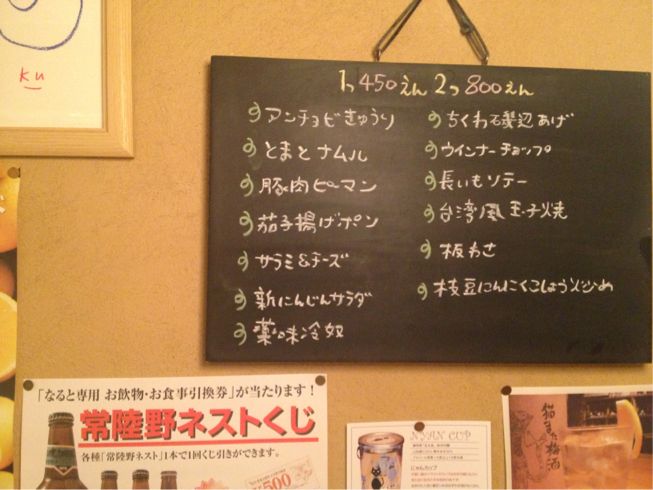 Ku
1つ450えん 2つ800えん
アンチョビきゅうり
とまとナムル
豚肉ピーマン
茄子揚げポン
サラミ&チーズ
新にんじんサラダ
薬味冷奴
ちくわ磯辺あげ
ウインナーチョップ
長いもソテー
台湾風玉子焼
板わさ
枝豆にんにくこしょう炒め
「なると専用 お飲物・お食事引換券」が当たります!
常陸野ネストくじ
各種「常陸野ネスト」1本で1回くじ引きができます。
¥500
NYAN CUP
にゃんカップ
猫また梅酒